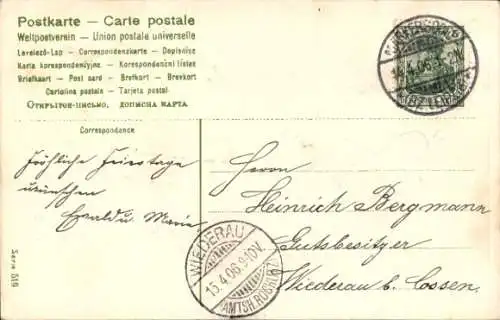 Postkarte — Carte postale
Weltpostverein — Union postale universelle
Levelező-Lap — Correspondenzkarte — Dopisnice
Karta korespondencyjna — Korespondenční lístek
Briefkaart — Post card — Brefkort — Brevkort
Cartolina postale — Tarjeta postal
Открытое-письмо, дописна карта
Correspondence
Fröhliche Feiertage
wünschen
Ewald u. Marie
Herrn
Heinrich Bergmann
Gutsbesitzer
Wiederau b. Cossen.
WIEDERAU
15.4.06. 9-10V.
AMTSH. ROCHLITZ
Serie 516